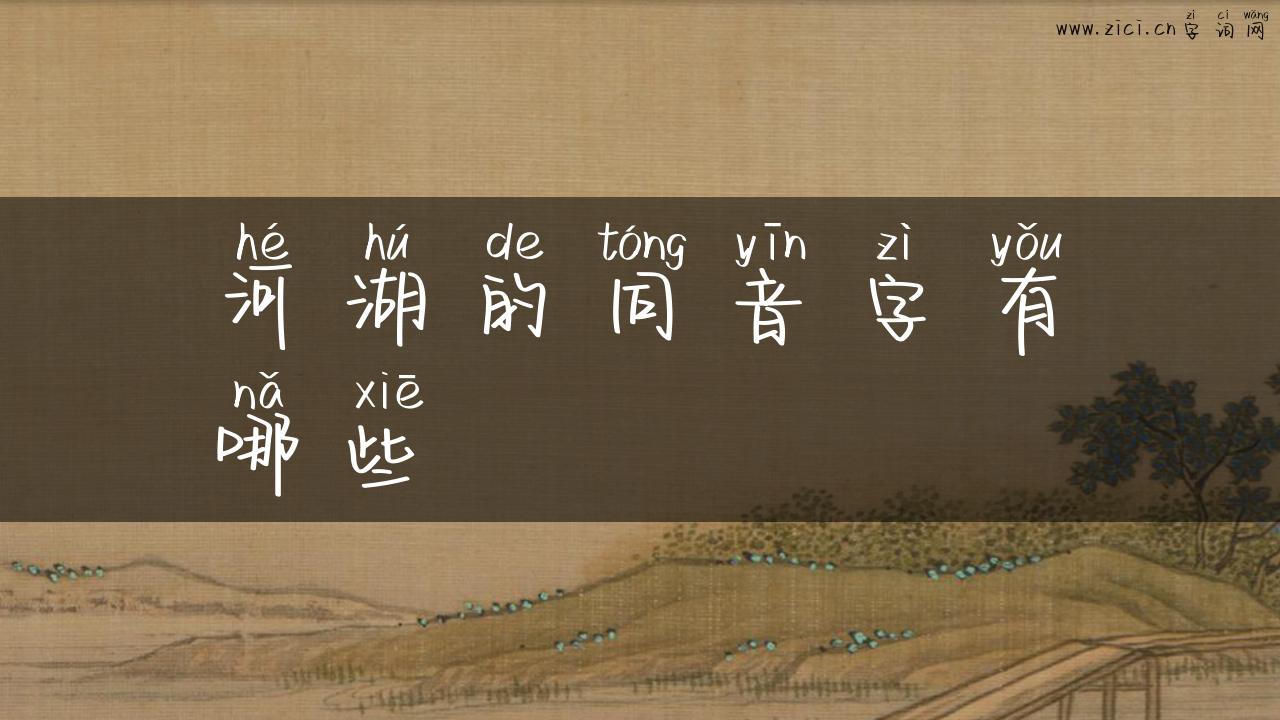 zì cí wǎng
www.zici.cn 字词网
hé hú de tóng yīn zì yǒu
河湖的同音字有
nǎ xiē
哪些